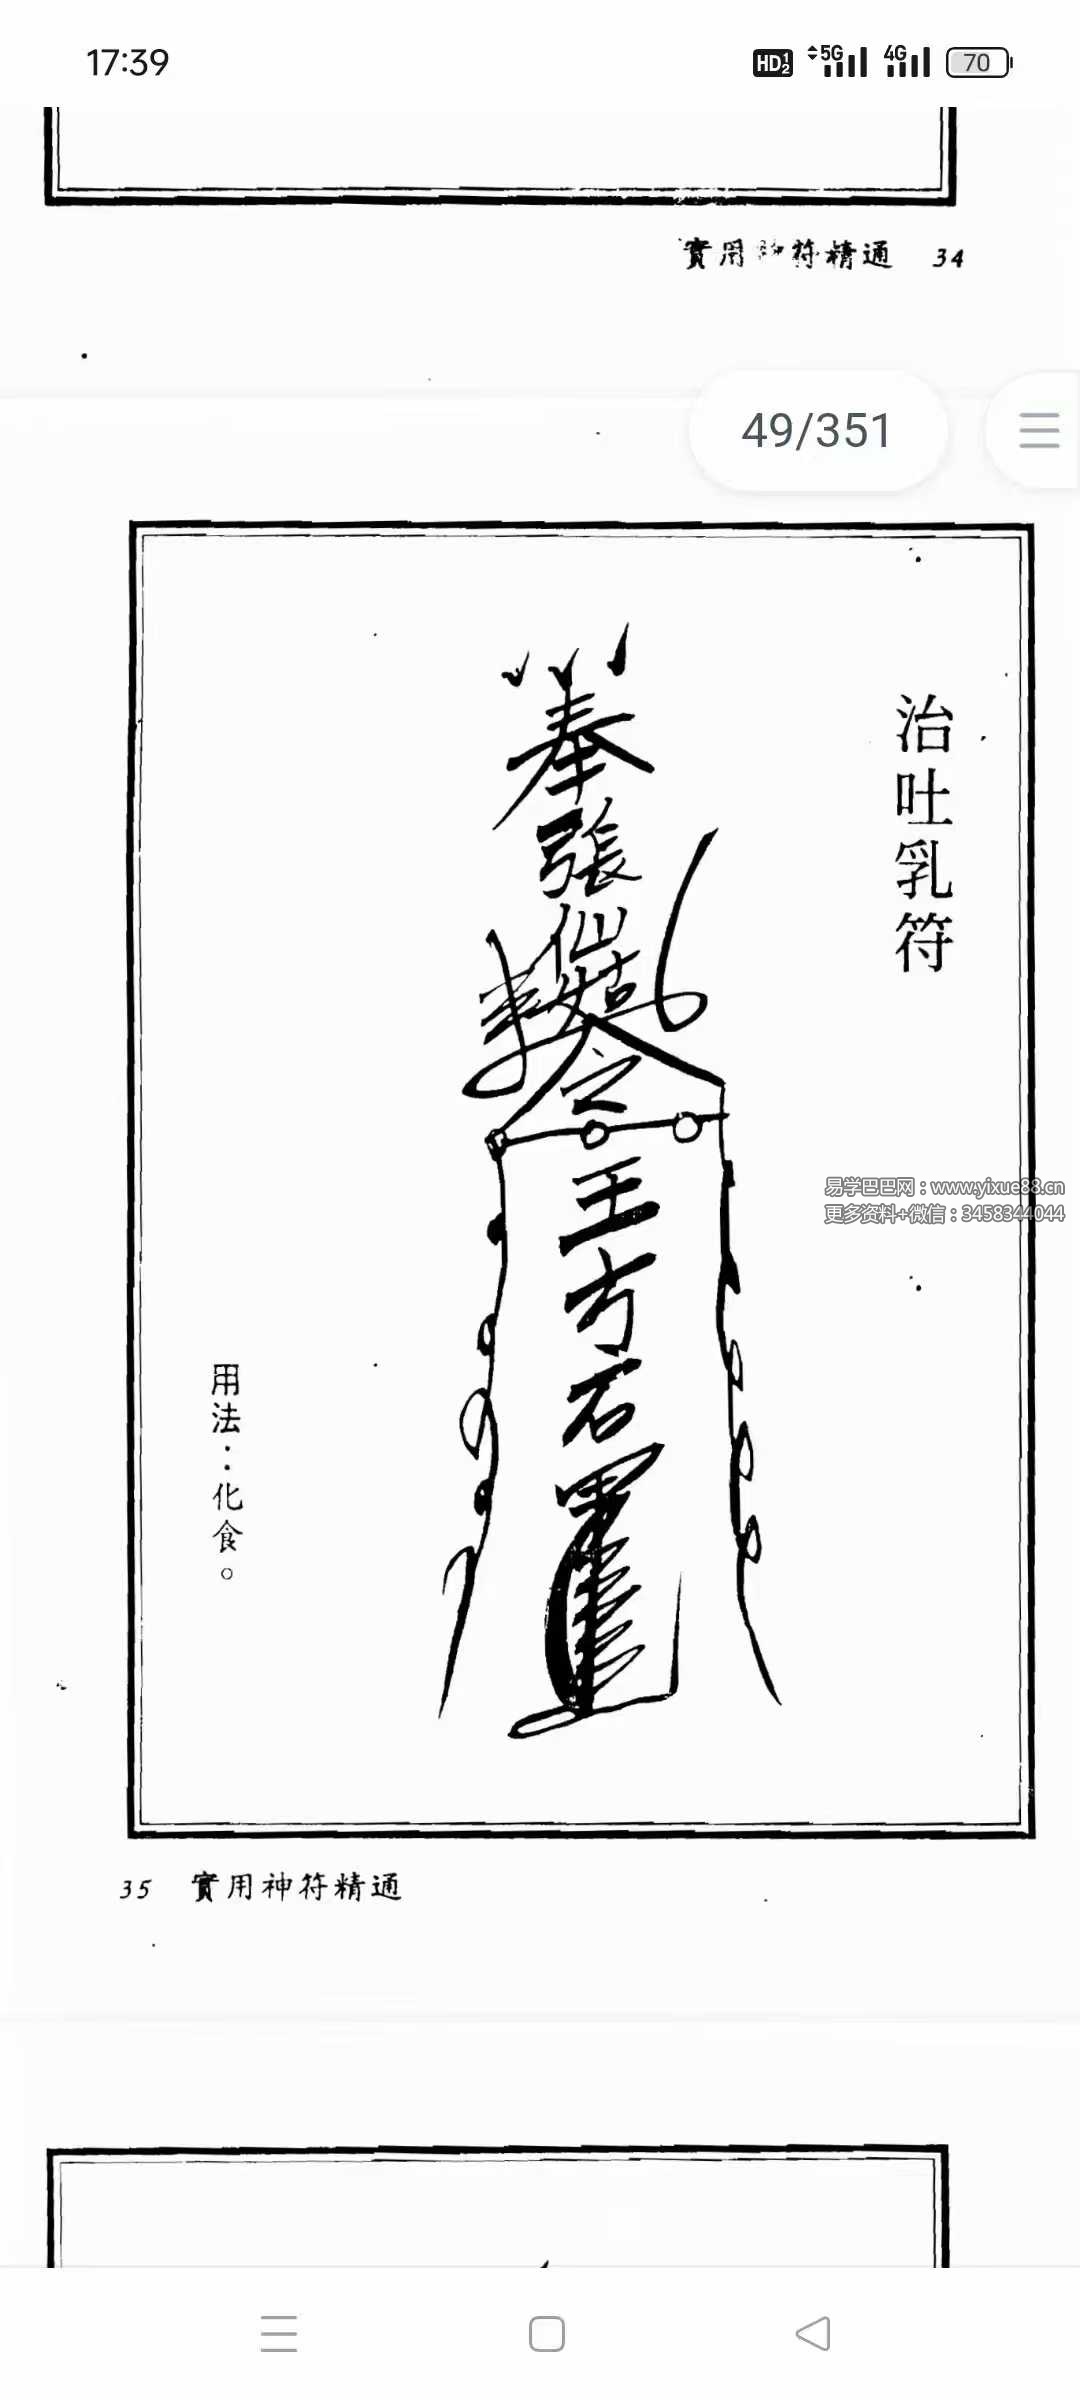 17:39
HD 1 2 5G 4G 70
實用神符精通 34
49/351
治吐乳符
奉
張
仙
姑
令
王
方
石
用法：化食。
易学巴巴网：www.yixue88.cn
更多资料+微信：3458344044
35 實用神符精通